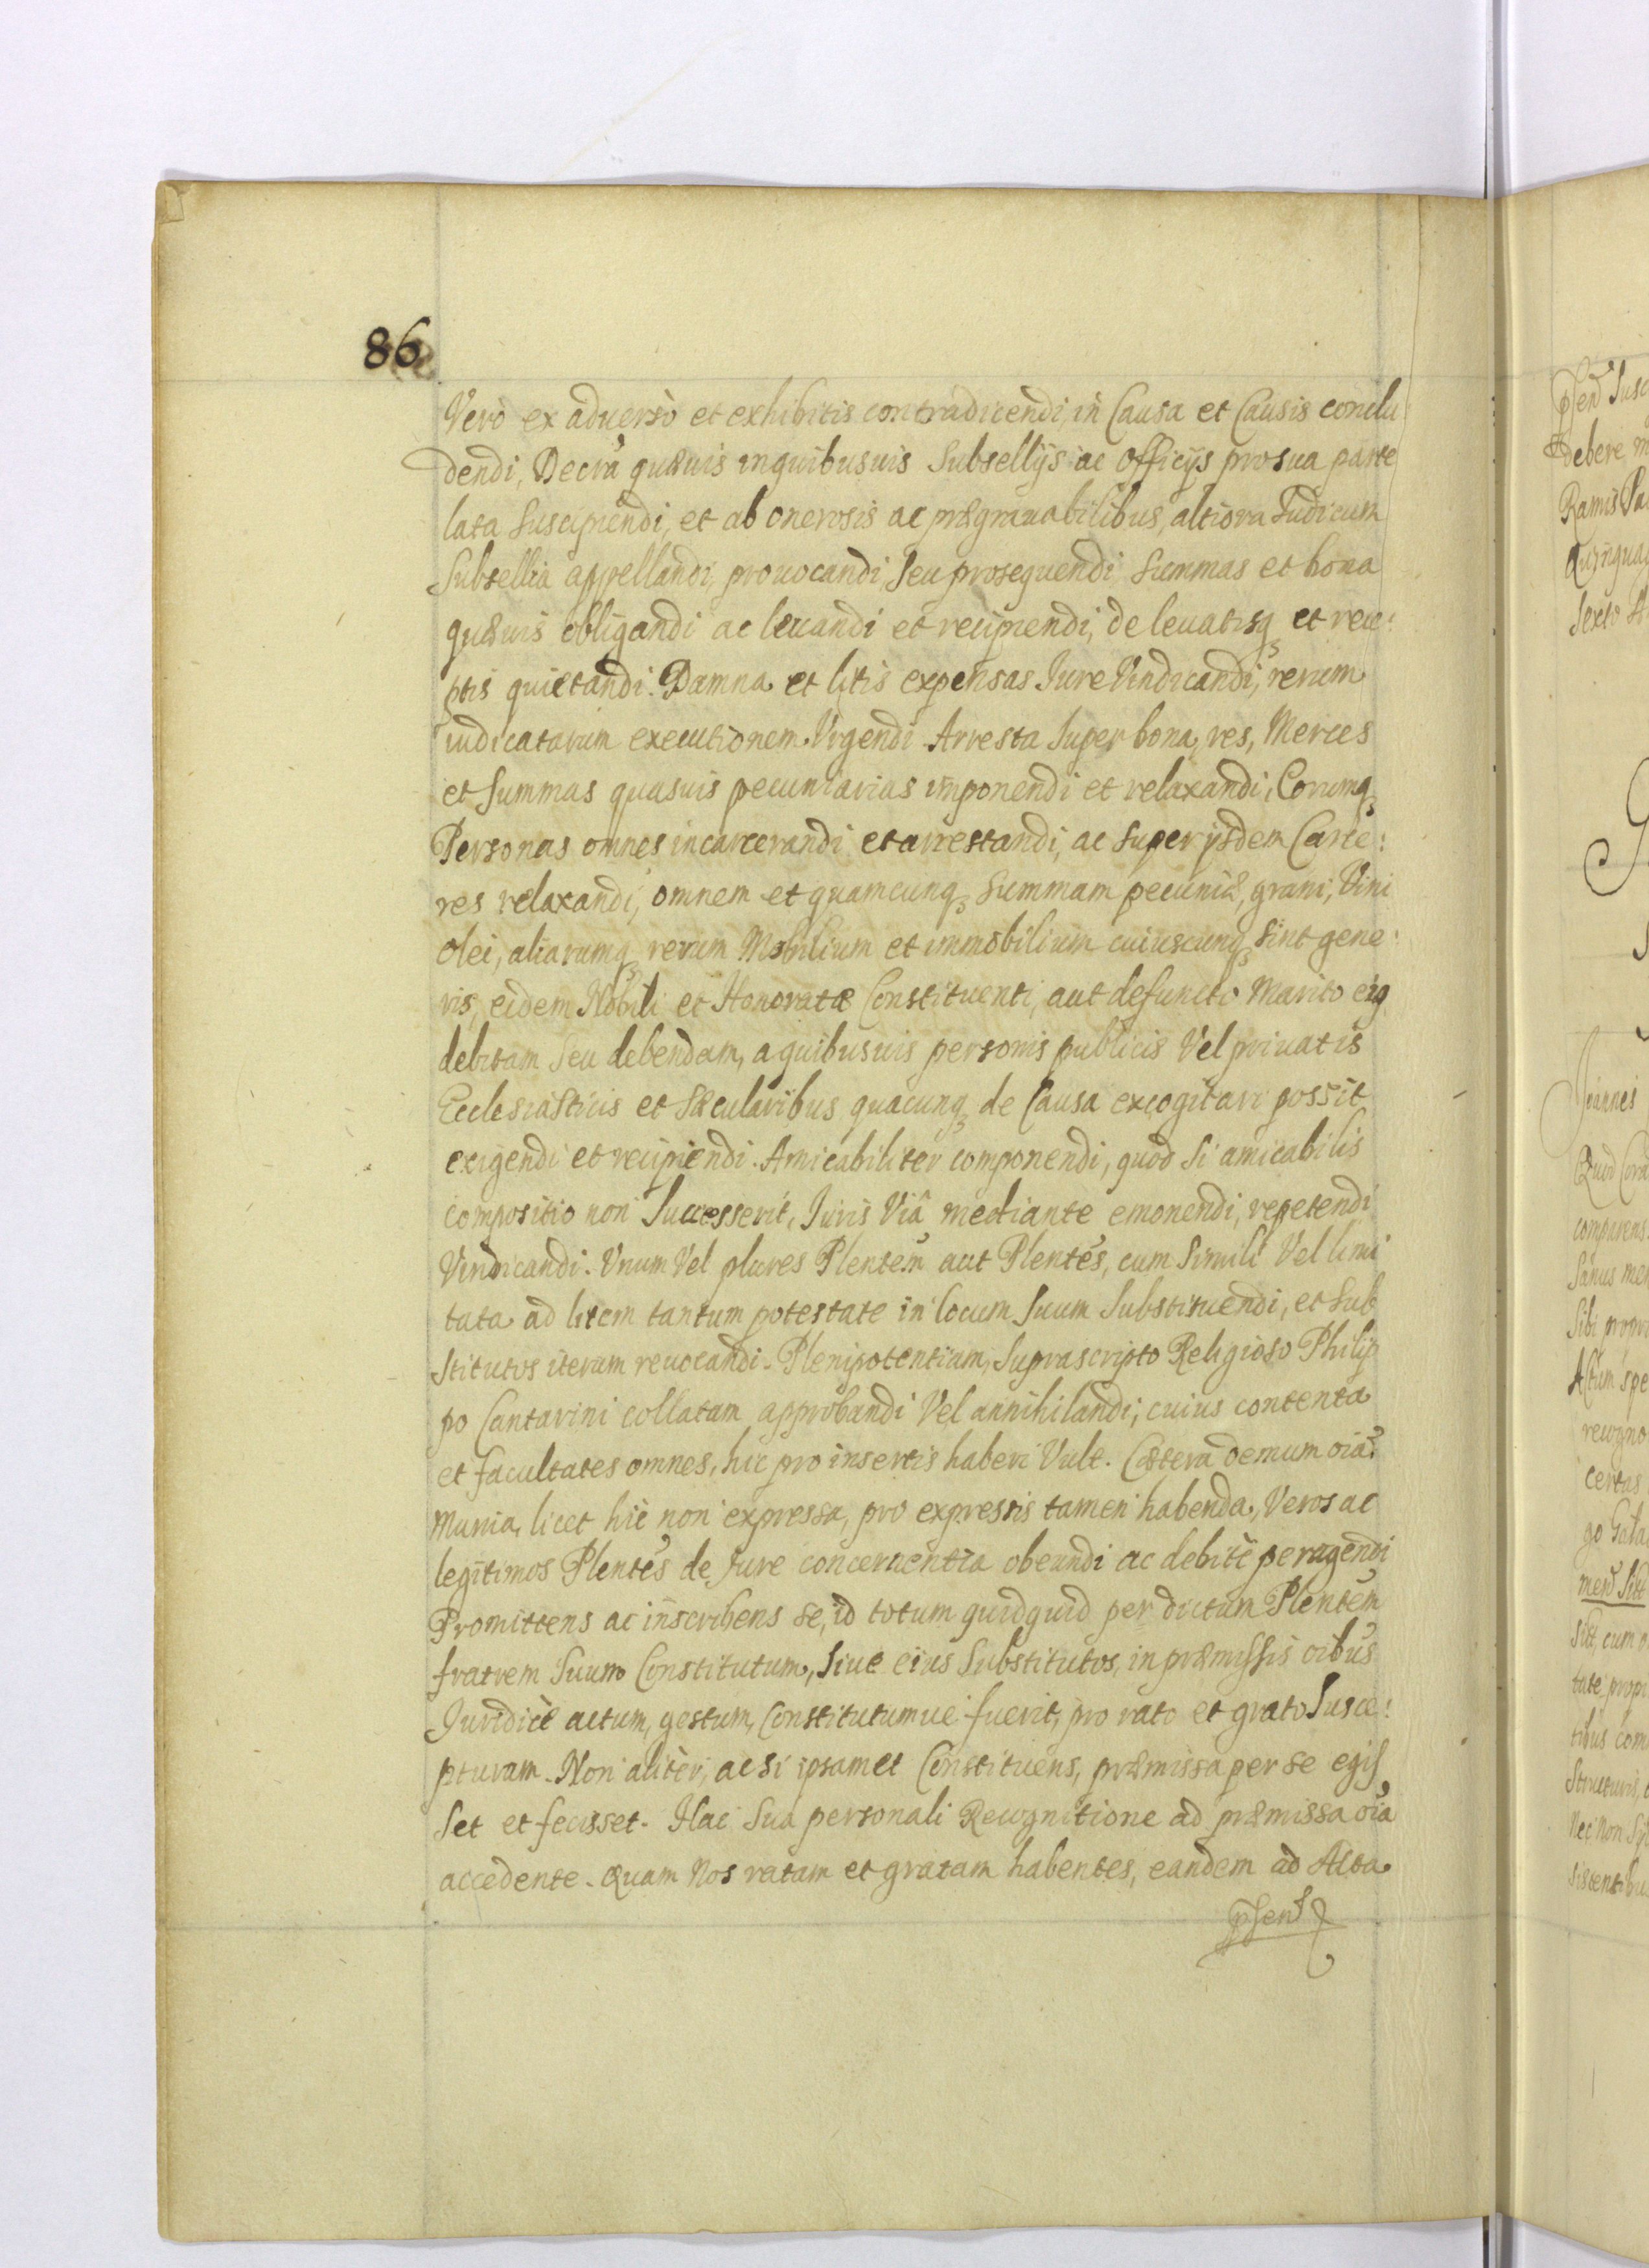 86
Vero ex aduersò et exhibitis contradicendi, in Causa et Causis conclu
dendi, Decra quæuis inquibusuis Subsellijs ac Officijs pro sua parte
lata suscipiendi, et ab onerosis ac prægrauabilibus, altiora Iudicum
Subsellia appellandi, prouocandi Seu prosequendi Summas et bona
quæuis obligandi ac leuandi et recipiendi, de leuatisq et rece:
ptis quietandi. Damna et litis expensas Iure Vindicandi, rerum
iudicatarum executionem Vrgendi Arresta Super bona, res, Merces
et Summas quasuis pecuniarias imponendi et relaxandi, Eorumq
Personas omnes incarcerandi et arrestandi, ac super ijsdem Carce:
res relaxandi, omnem et quamcunq Summam pecuniæ, grani, Vini
olei, aliarumq rerum Mobilium et immobilium cuiuscunq sint gene:
ris, eidem Nobili et Honoratæ Constituenti, aut defuncto Marito eig
debitam seu debendam, a quibusuis personis publicis Vel priuatis
Ecclesiasticis et Sæcularibus quacunq de Causa excogitari possit
exigendi et recipiendi. Amicabiliter componendi, quod si amicabilis
compositio non Successerit, Iuris Viâ mediante emonendi, repetendi
Vindicandi. Vnum Vel plures Plentem aut Plentes, cum Simili Vel limi
tata ad litem tantum potestate in locum Suum Substituendi, et Sub
stitutos iterum reuocandi. Plenipotentiam, Suprascripto Religioso Philip
po Cantarini collatam approbandi Vel annihilandi; cuius contenta
et facultates omnes, hic pro insertis haberi Vult. Cætera demum oia
munia, licet hic non expressa, pro expressis tamen habenda, Veros ac
legitimos Plentes de Iure concernentia obeundi ac debitè peragendi
Promittens ac inscribens se, id totum quidquid per dictum Plentem
fratrem Suum Constitutum, Siue eius Substitutos, in præmissis oibus
Iuridicè actum, gestum, Constitutumue fuerit, pro rato et grato Susce:
pturam. Non aliter, ac si ipsamet Constituens, præmissa per se egis
set et fecisset. Hac Sua personali Recognitione ad præmissa oia
accedente. Quam Nos ratam et gratam habentes, eandem ad Acta
pſent